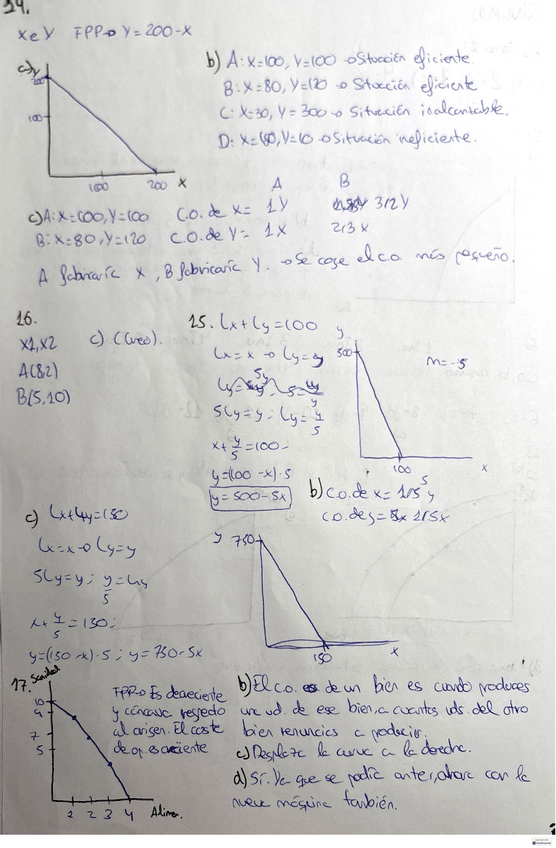 14.
X e Y FPP→ Y=200-X
a) Y
200
100
100 200 X
b) A: X=100, Y=100 → Situación eficiente.
B: X=80, Y=120 → Situación eficiente
C: X=30, Y=300 → Situación inalcanzable.
D: Y=10 → Situación ineficiente.
A B
c) A: X=100, Y=100 C.O. de X= 1Y 3/2 Y
B: X=80, Y=120 C.O. de Y= 1X 2/3 X
A fabricaría X, B fabricaría Y. → Se coge el c.o más pequeño.
16.
X1, X2
A(8,2)
B(5,10)
c) (Creo).
15. Lx+Ly=100
Lx=x → Ly=y
5Ly=y; Ly=y/5
x+y/5=100;
y=(100-x)·5
y=500-5x
y
500
100 x
m=-5
b) C.O. de x= 5 y
C.O. de y= 1/5x
c) Lx+Ly=150
Lx=x → Ly=y
5Ly=y; y/5=Ly
x+y/5=150;
y=(150-x)·5; y=750-5x
y 750
150 x
17. Sanidad
10
9
7
5
1 2 3 4 Alimen.
FPP→ Es decreciente
y cóncava respecto
al origen. El coste
de op. es creciente
b) El c.o. de un bien es cuando produces
una ud. de ese bien, a cuantas uds. del otro
bien renuncias a producir.
c) Desplaza la curva a la derecha.
d) Sí. Ya que se podía antes, ahora con la
nueva máquina también.